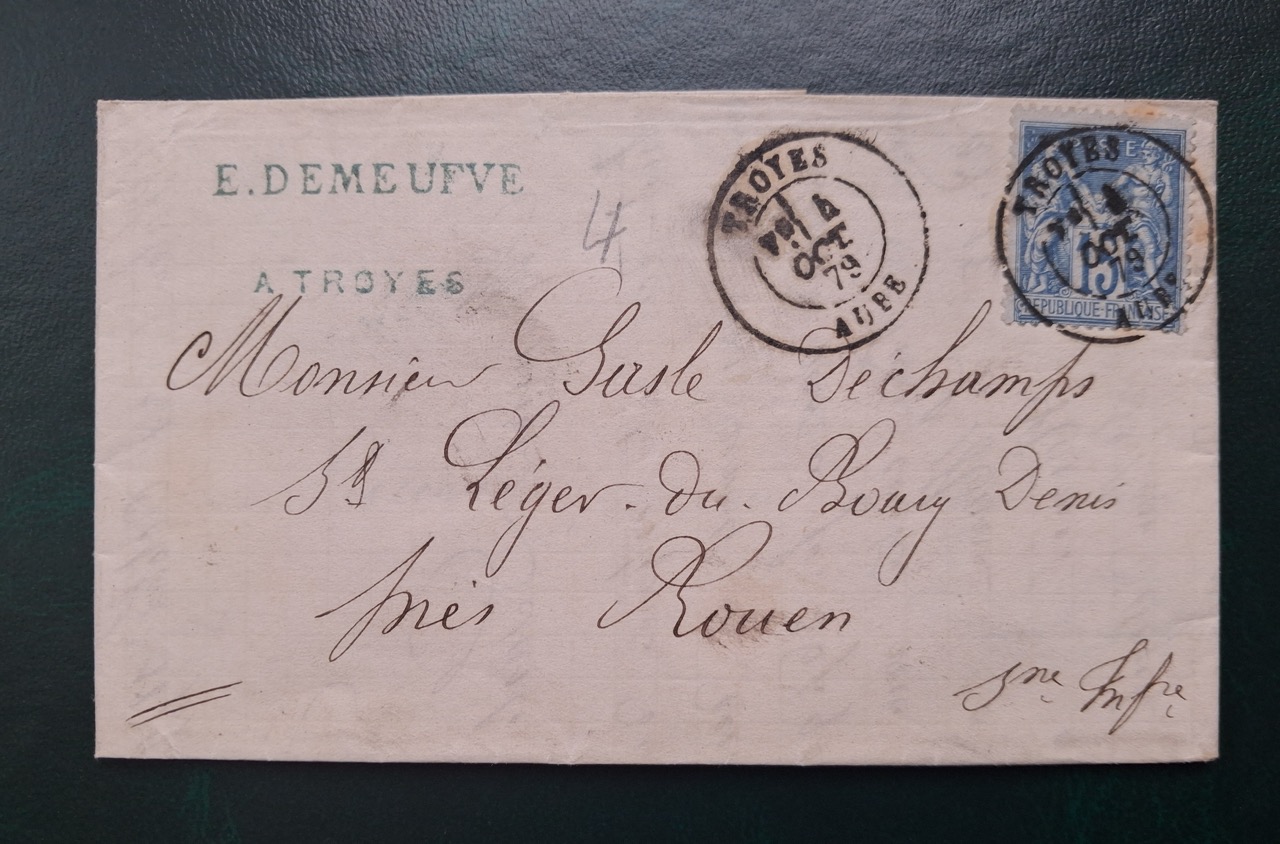 E. DEMEUFVE
A TROYES
4
TROYES
4
OCT
79
AUBE
TROYES
4
OCT
79
AUBE
15
REPUBLIQUE FRANÇAISE
Monsieur Gasle Déchamps
St Léger-du-Bourg Denis
près Rouen
Sne Infre